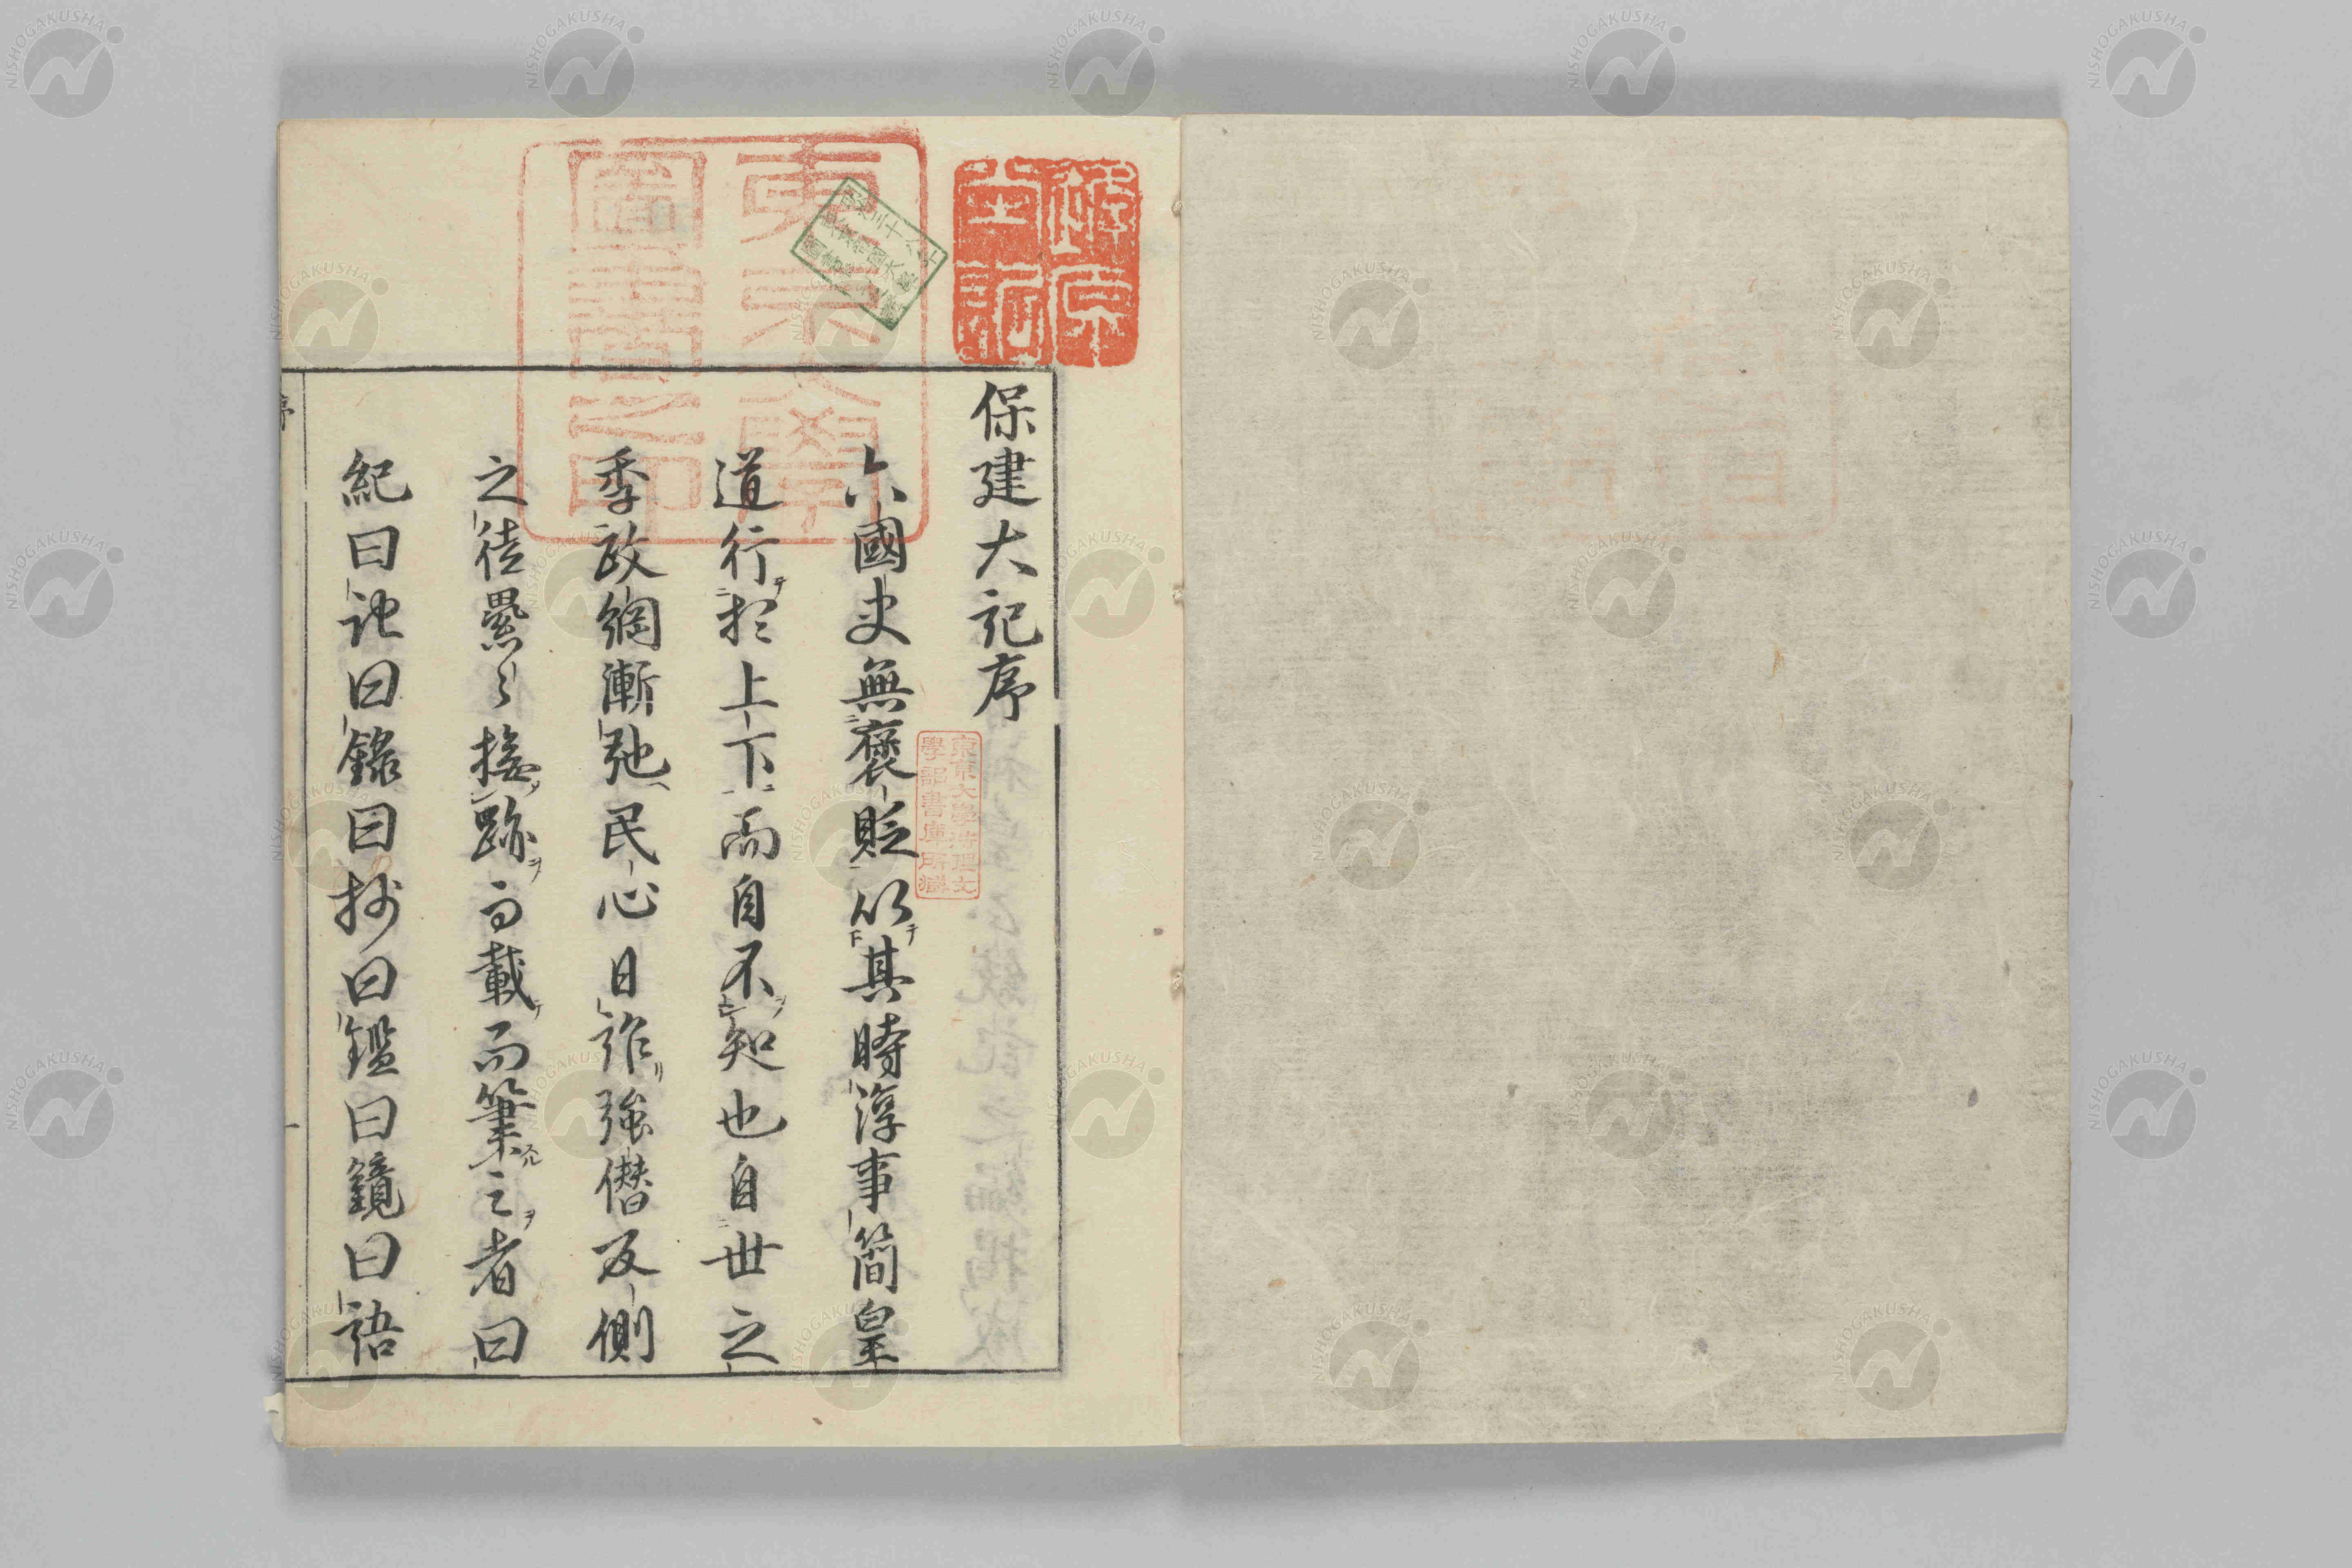 保建大記序
六國史無褒貶以其時淳事簡皇
道行於上下而自不知也自世之
季政綱漸弛民心日詐強僭反側
之徒纍〻接跡而載而筆之者曰
紀曰記曰錄曰抄曰鑑曰鏡曰語
序
東京大學
圖書之印
東京大學法理文
學部書庫所藏
NISHOGAKUSHA